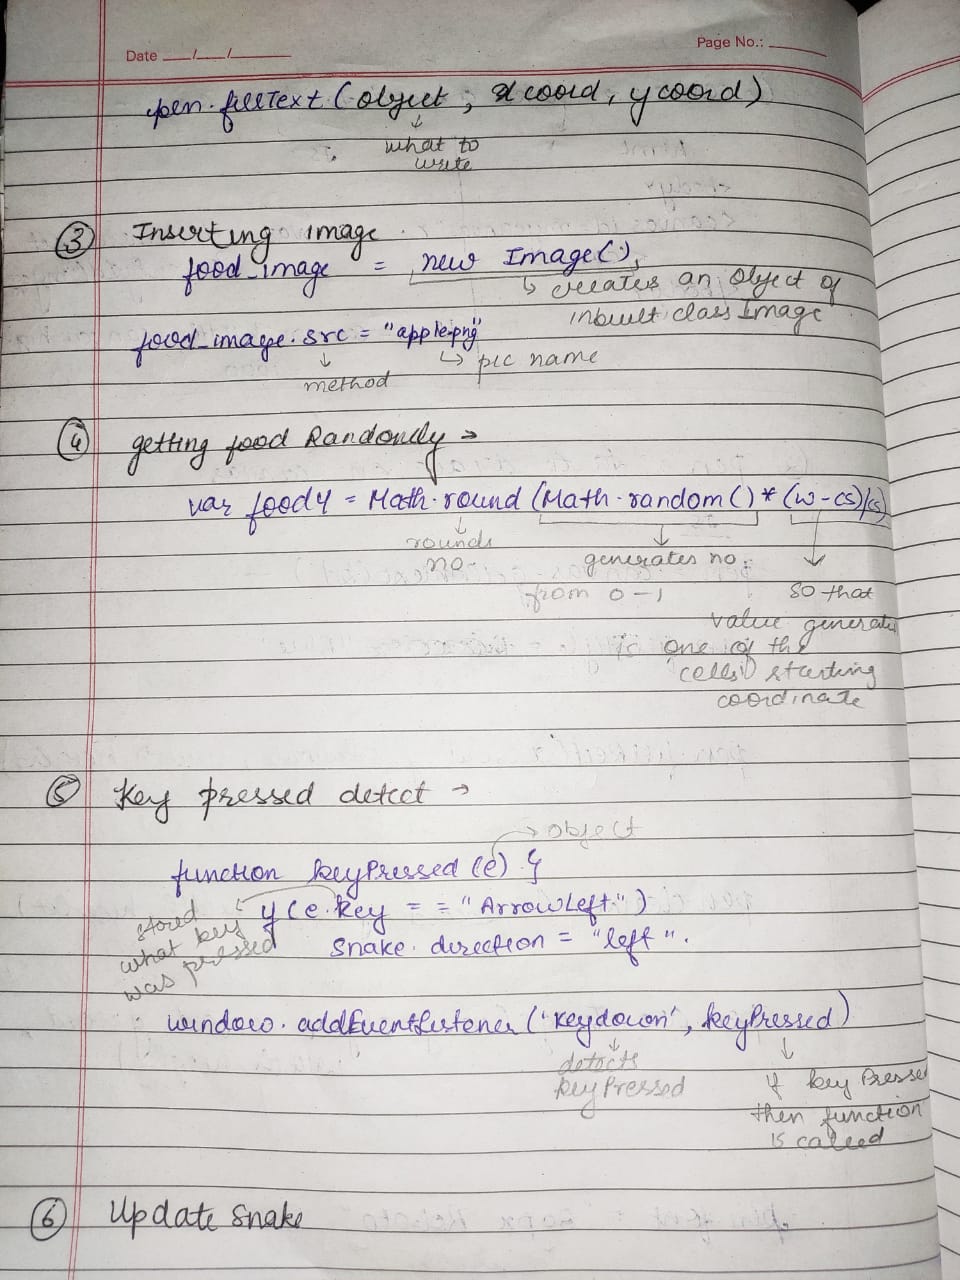 Date __/__/____
Page No.:
pen.fillText (object, x coord, y coord)
what to
write
③ Inserting image
food_image = new Image();
↳ creates an object of
inbuilt class Image
food_image.src = "apple.png"
↳ pic name
method
④ getting food Randomly →
var foodY = Math.round (Math.random() * (w-cs)/cs)
rounds
no.
generates no.
from 0-1
so that
value generates
is one of the
cells starting
coordinate
⑤ Key pressed detect →
→ object
function keyPressed (e) {
if (e.key == "ArrowLeft")
snake.direction = "left".
stored
what key
was pressed
window.addEventListener ('keydown', keyPressed)
detects
keyPressed
if key Presse
then function
is called
⑥ Update Snake